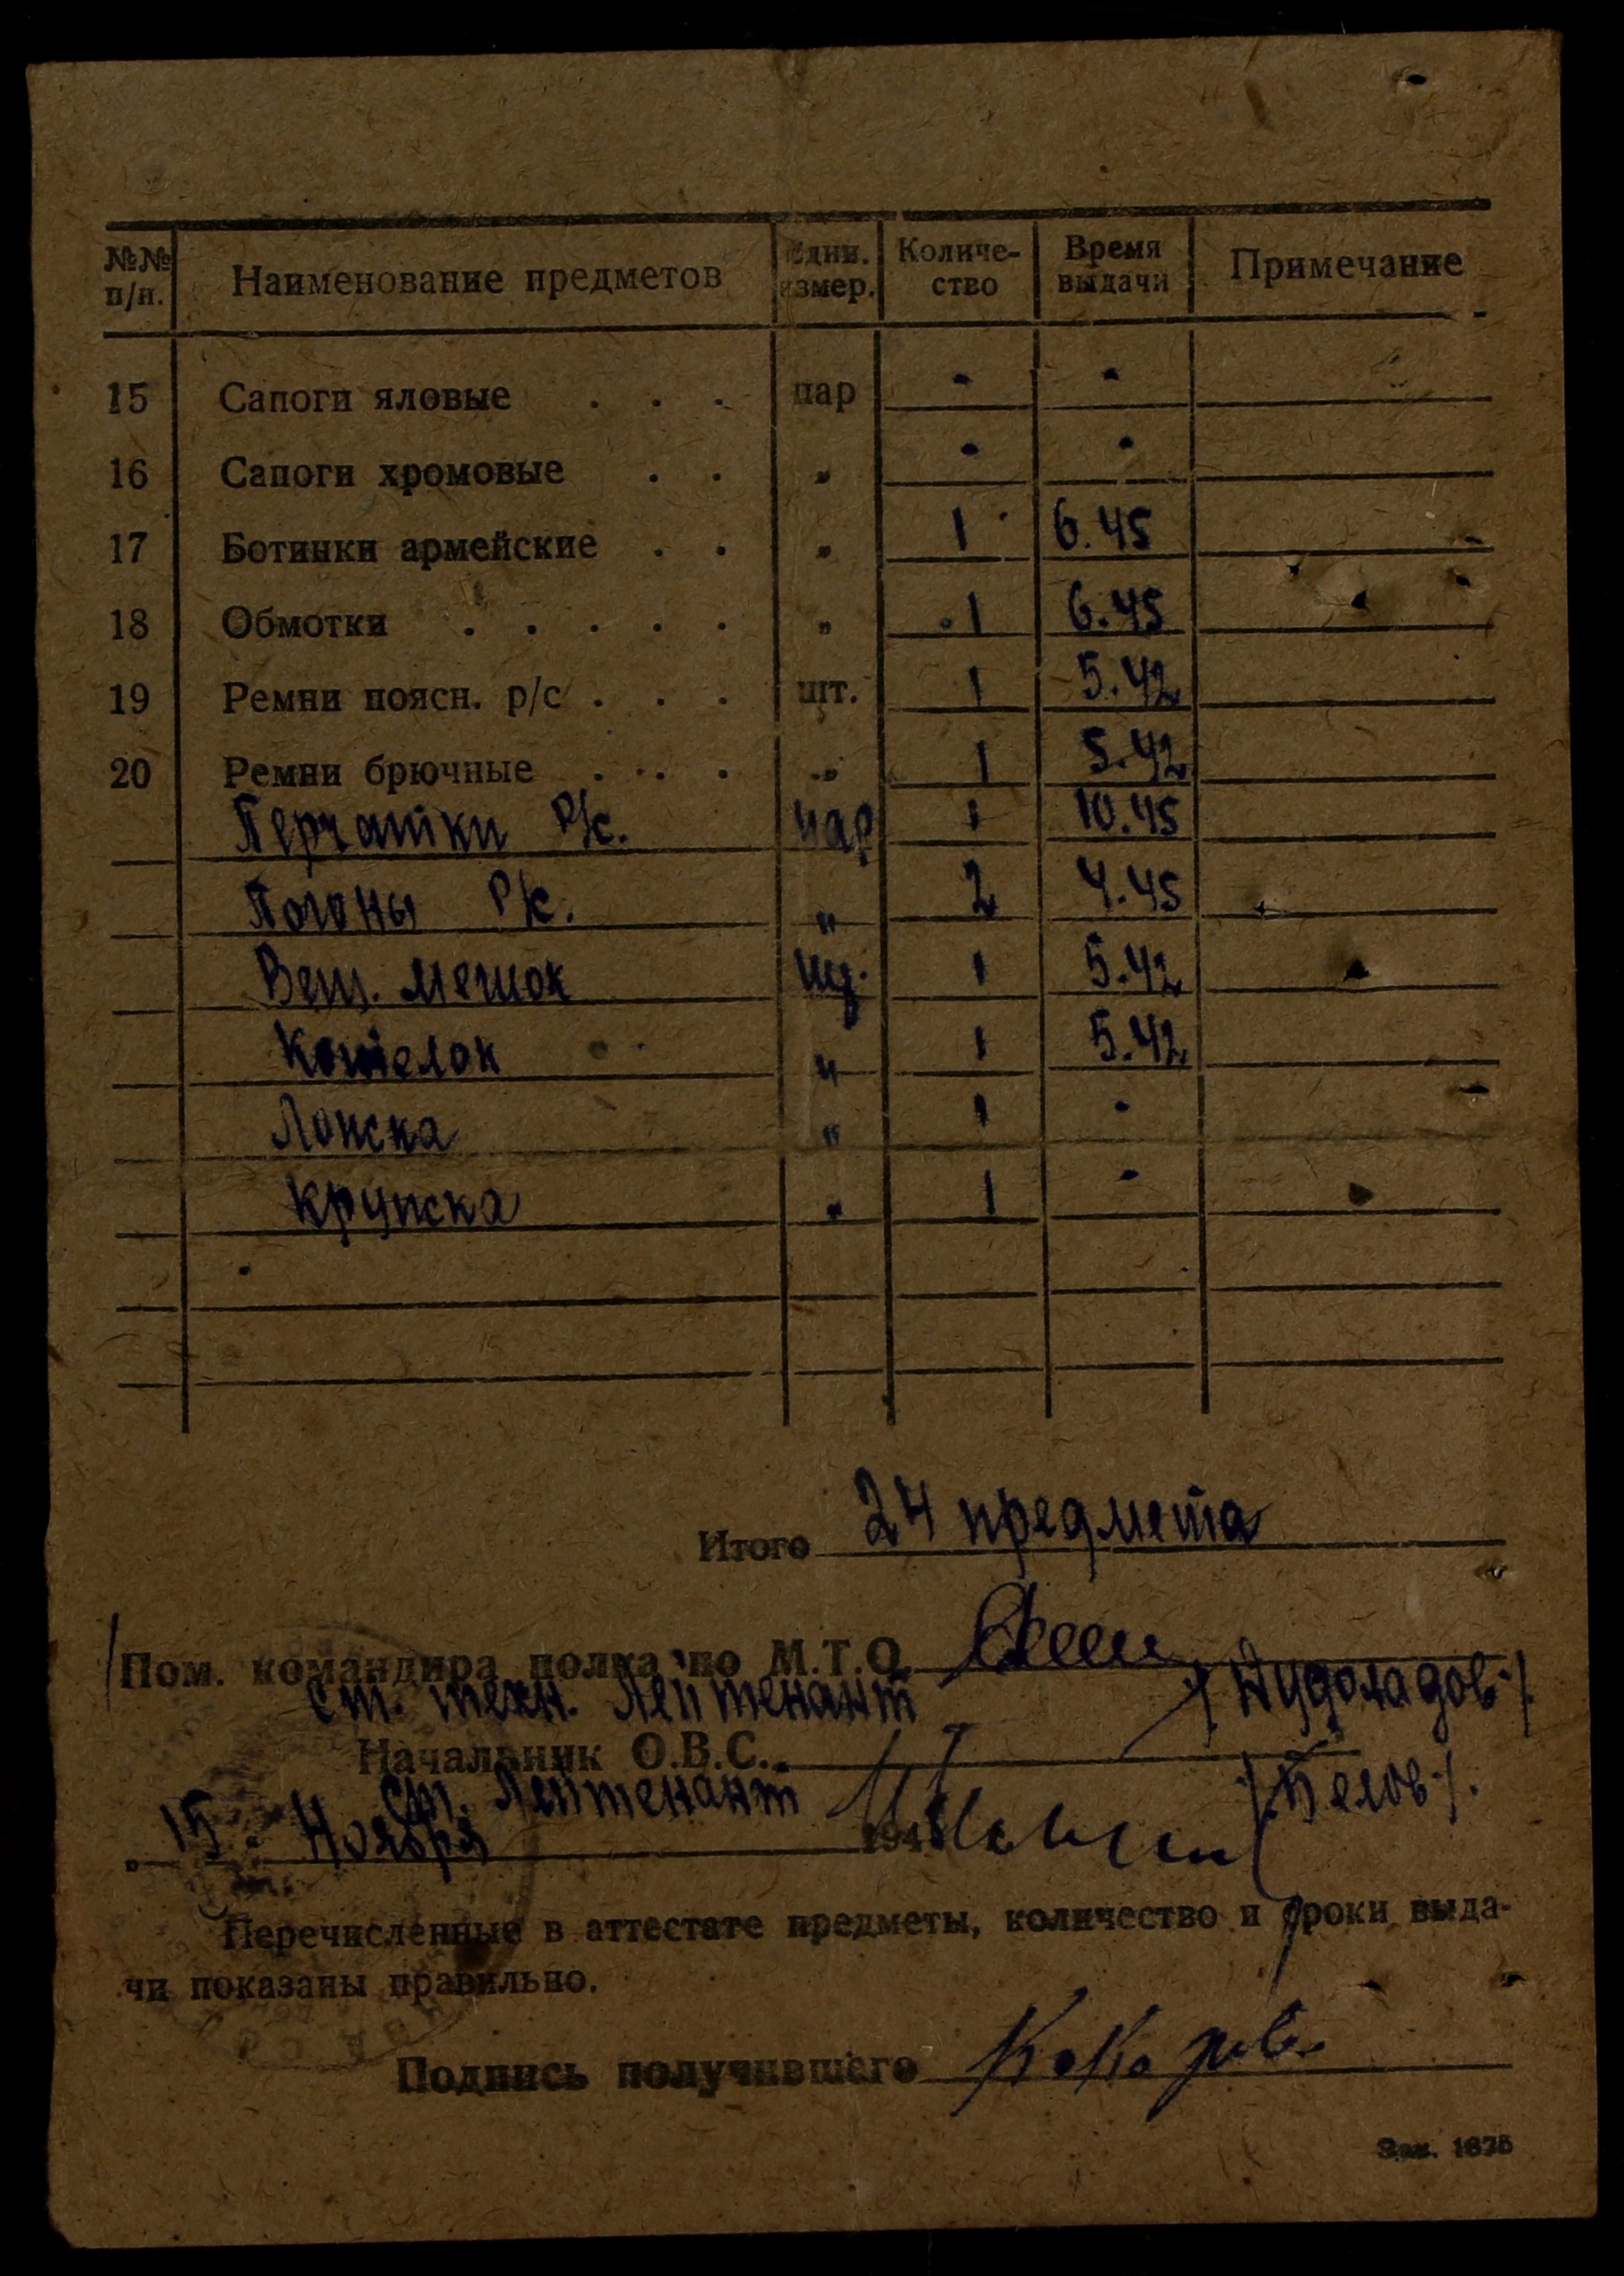 №№ п/н. Наименование предметов Един. измер. Количе-ство Время выдачи Примечание
15 Сапоги яловые . . . пар - -
16 Сапоги хромовые . . „ - -
17 Ботинки армейские . . „ 1 6.45
18 Обмотки . . . . . „ 1 6.45
19 Ремни поясн. р/с . . . шт. 1 5.42
20 Ремни брючные . . . „ 1 5.42
Перчатки р/с. пар 1 10.45
Погоны р/с. „ 2 4.45
Вещ. мешок шт. 1 5.42
Котелок „ 1 5.42
„ 1 -
„ 1 -
Итого 24 предмета
Пом. командира полка по М.Т.О.
ст. техн. Лейтенант
Начальник О.В.С.
ст. Лейтенант /Белов/.
„15" Ноября 194
Перечисленные в аттестате предметы, количество и сроки выда-
чи показаны правильно.
Подпись получившего
Зак. 1675